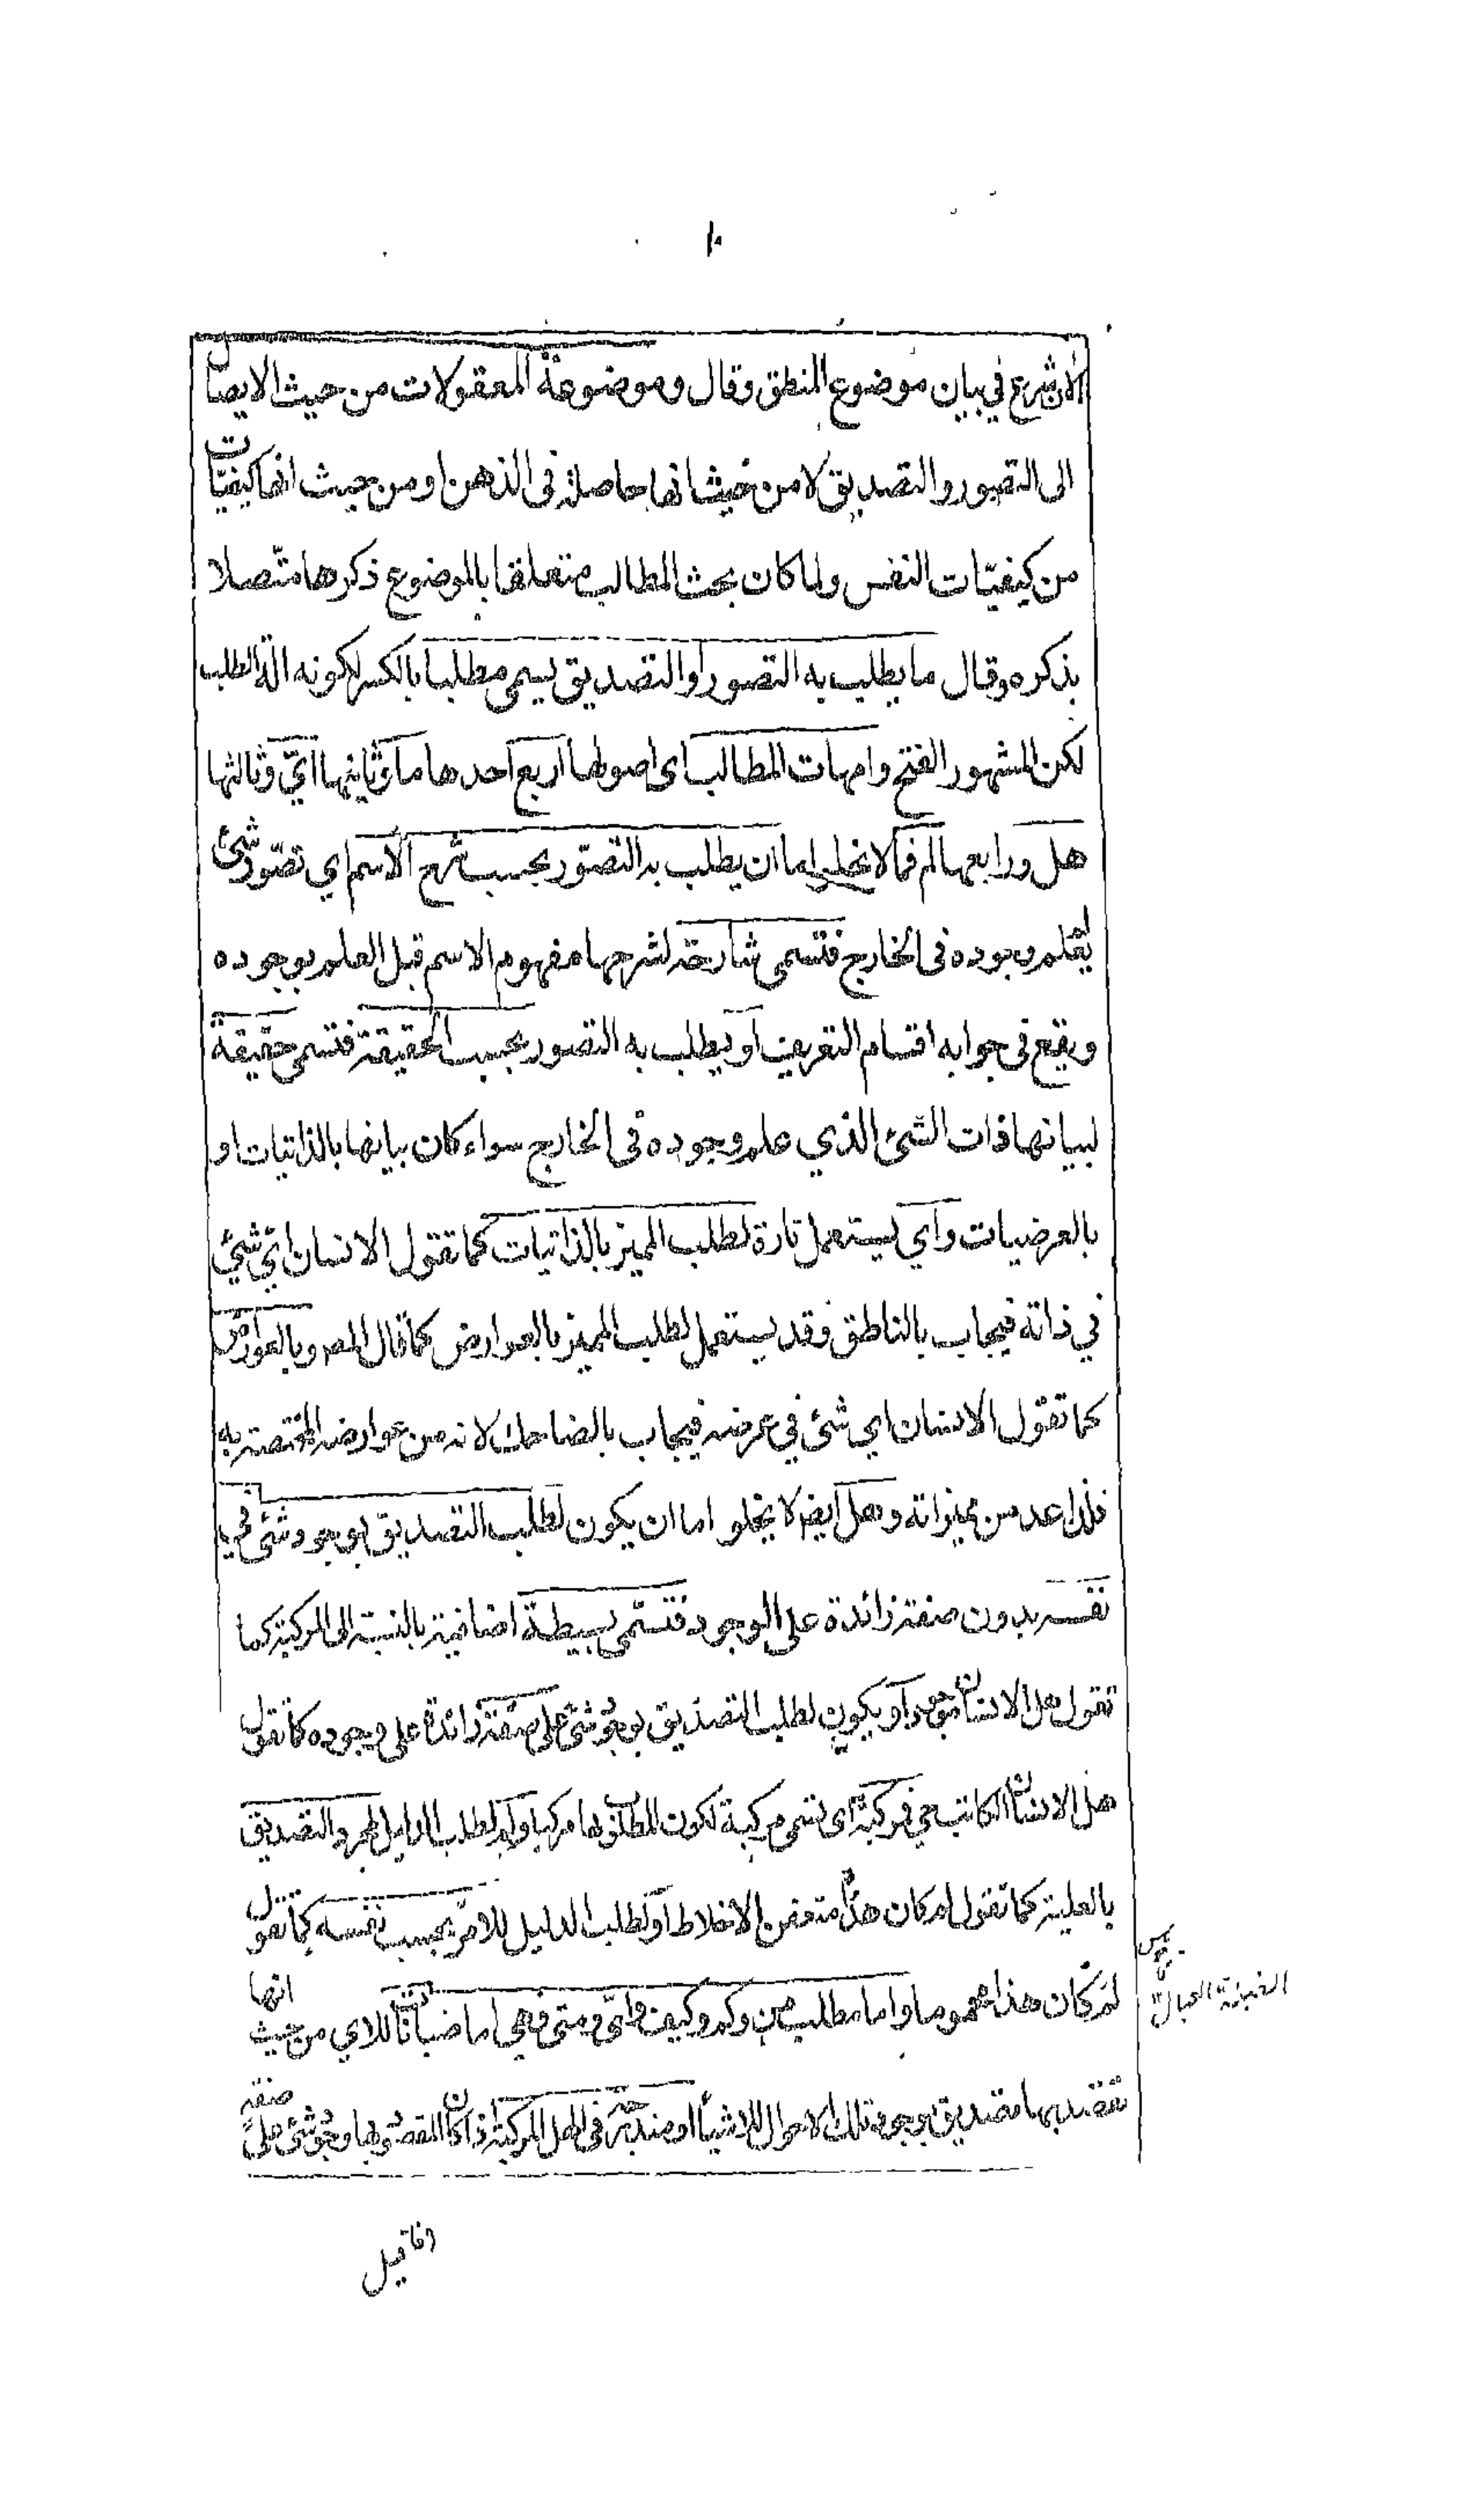 ١٠
الان شرع في بيان موضوع المنطق وقال وموضوعه المعقولات من حيث الايصال
الى التصور والتصديق لا من حيث انها حاصلة فى الذهن او من حيث انها كيفيات
من كيفيّات النفس ولما كان بحث المطالب متعلقا بالموضوع ذكرها متّصلا
بذكره وقال ما يطلب به التصور او التصديق يسمى مطلبا بالكسر لكونه الة الطلب
لكن المشهور الفتح وامهات المطالب اى اصولها اربع احدها ما وثانيها ايّ وثالثها
هل ورابعها لم فما لا يخلو اما ان يطلب به التصوّر بحسب شرح الاسم اي تصوّر شئ
لم يعلم وجوده فى الخارج فتسمى شارحة لشرحها مفهوم الاسم قبل العلم بوجوده
ويقع فى جوابه اقسام التعريف او يطلب به التصور بحسب الحقيقة فتسمى حقيقة
لبيانها ذات الشئ الذي علم وجوده فى الخارج سواء كان بيانها بالذاتيات او
بالعرضيات واي يستعمل تارة لطلب المميز بالذاتيات كما تقول الانسان ايّ شئ
في ذاته فيجاب بالناطق وقد يستعمل لطلب المميز بالعوارض كما قال المص وبالعوارض
كما تقول الانسان اي شئ في عرضه فيجاب بالضاحك لانه من عوارضه المختصة به
فلذا عد من مميزاته وهل ايضا لا يخلو اما ان يكون لطلب التصديق بوجود شئ في
نفسه بدون صفة زائدة على الوجود فتسمّى بسيطة اضافية بالنسبة الى المركبة كما
تقول هل الانسان موجود او يكون لطلب التصديق بوجود شئ على صفة زائدة على وجوده كما تقول
هل الانسان الكاتب حي فمركبة اى تسمى مركبة لكون المطلوب بها مركبا ولم لطلب الدليل لمجرد التصديق
بالعلية كما تقول لم كان هذا متعفن الاخلاط او لطلب الدليل للامر بحسب نفسه كما تقول
لم كان هذا محموما واما مطلب من وكم وكيف واين ومتى فهي اما ذنابات للاي من حيث انها
تقصد بها تصديق بوجود تلك الاحوال للاشياء او مندرجة فى الهل المركبة اذ كان المقصود بها وجود شئ على صفة